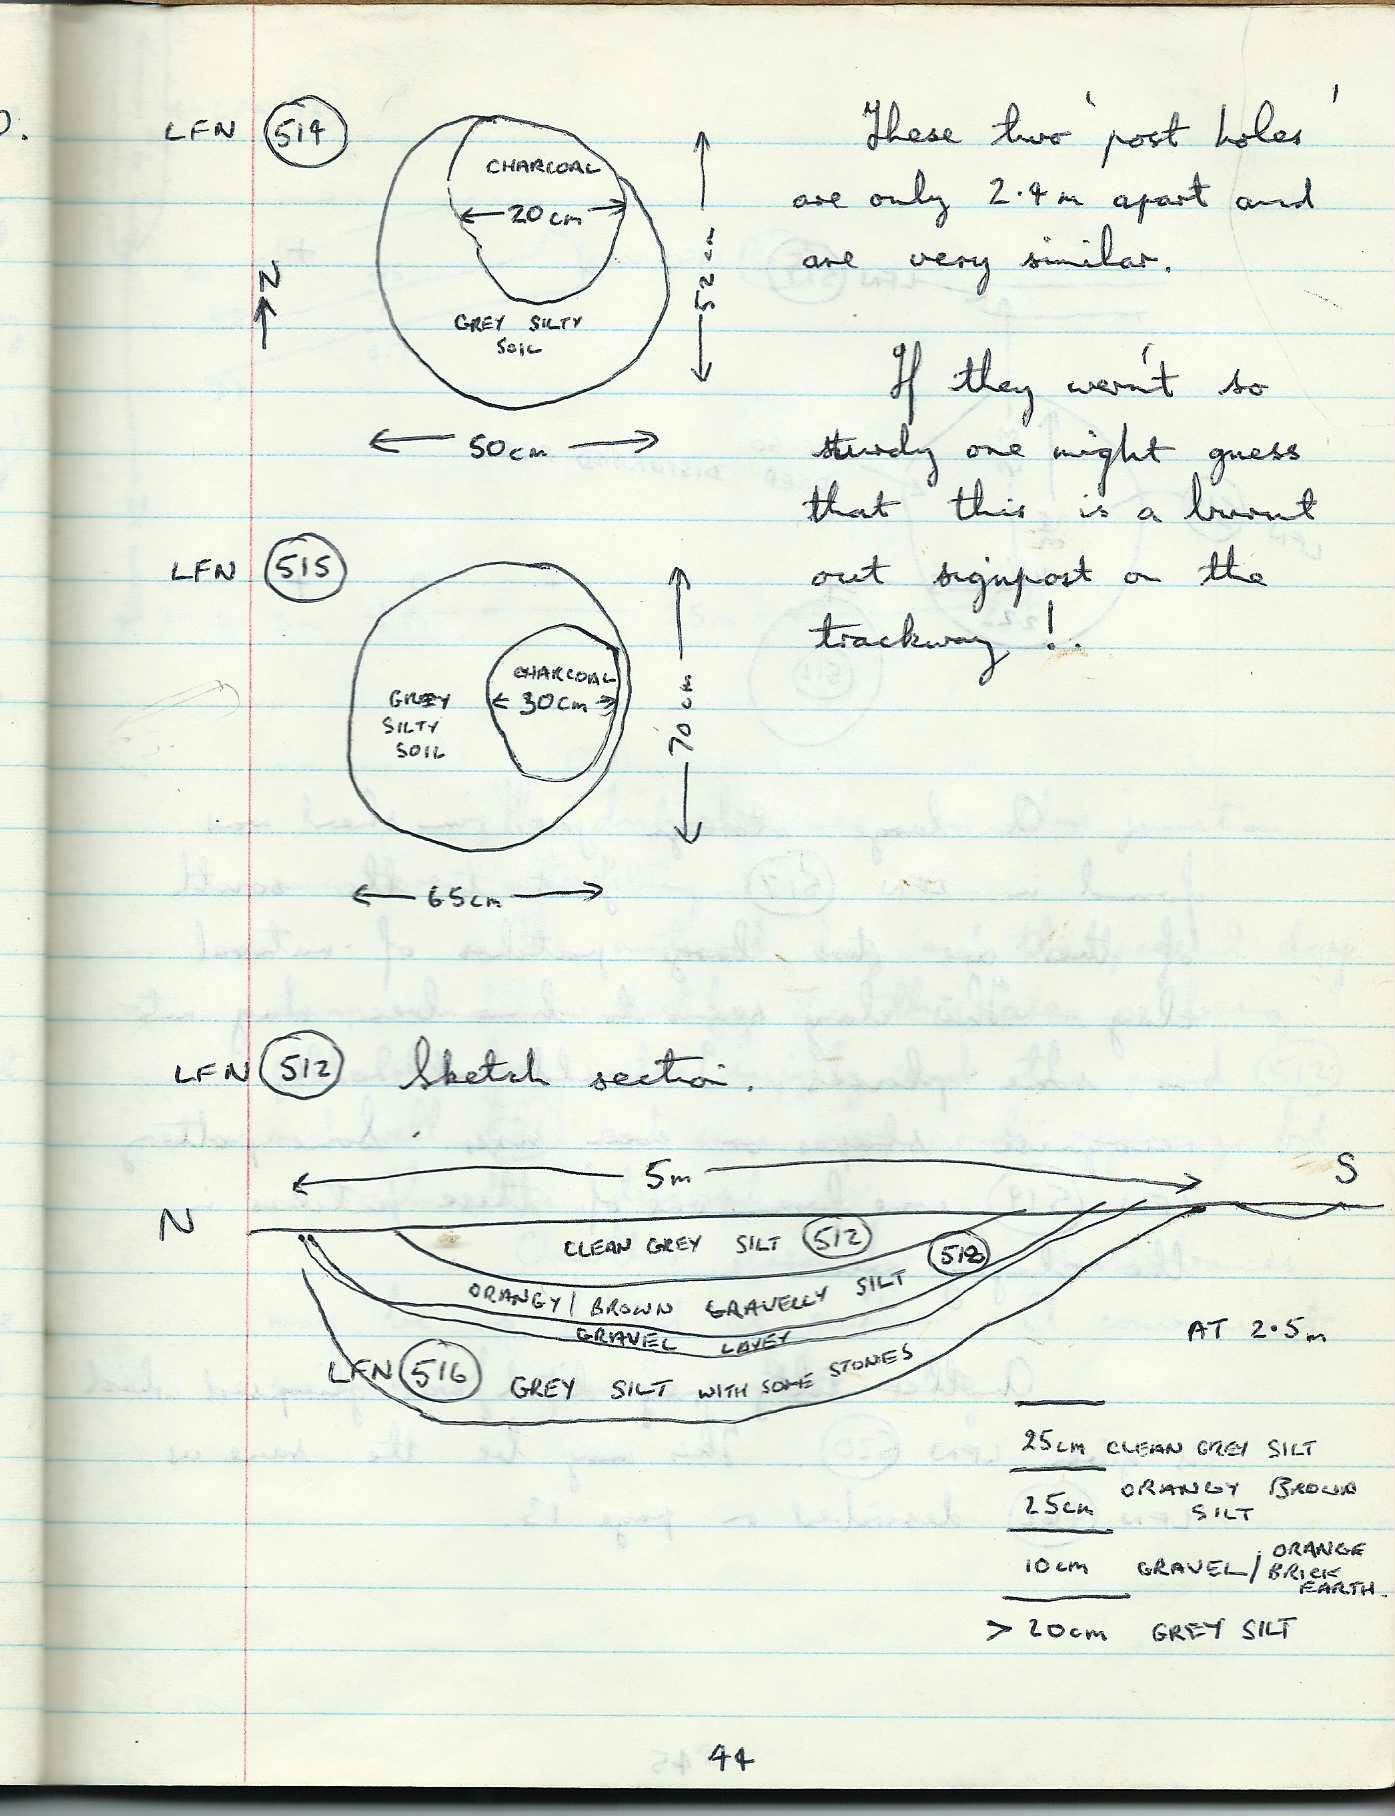 LFN 514
CHARCOAL
20cm
GREY SILTY
SOIL
52cm
50cm
N
These two 'post holes'
are only 2.4m apart and
are very similar.
If they wern't so
sturdy one might guess
that this is a burnt
out signpost on the
trackway !.
LFN 515
CHARCOAL
30cm
GREY
SILTY
SOIL
70cm
65cm
LFN 512 Sketch section.
5m
N
S
CLEAN GREY SILT 512
ORANGY/BROWN GRAVELLY SILT 512
GRAVEL LAYEY
LFN 516 GREY SILT WITH SOME STONES
AT 2.5m
25cm CLEAN GREY SILT
25cm ORANGY BROWN
SILT
10cm GRAVEL/ORANGE
BRICK
EARTH.
> 20cm GREY SILT
44